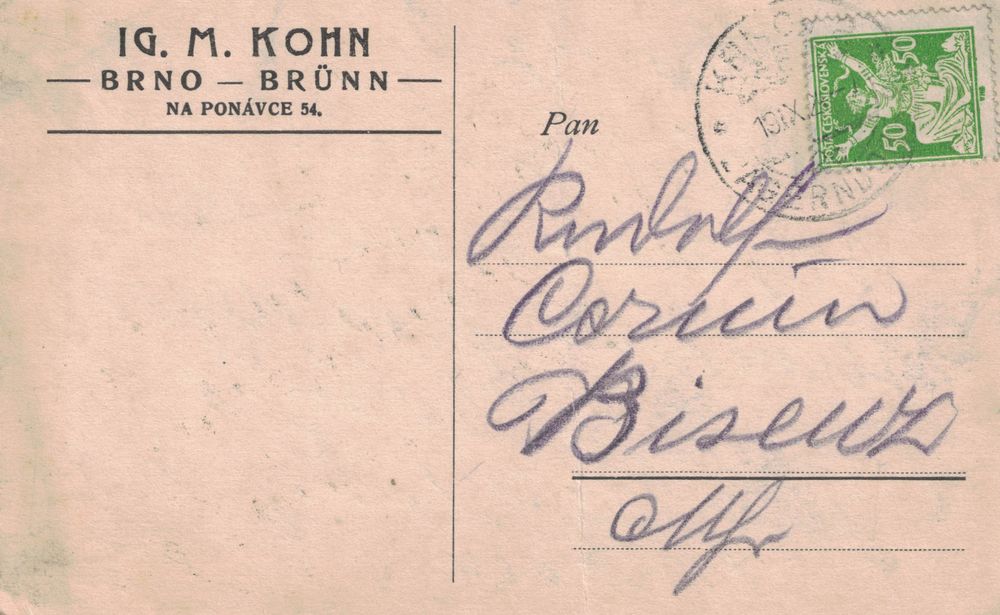 IG. M. KOHN
BRNO — BRÜNN
NA PONÁVCE 54.
Pan
Rudolf
Bisenz
POŠTA ČESKOSLOVENSKÁ
50
50
19.IX.